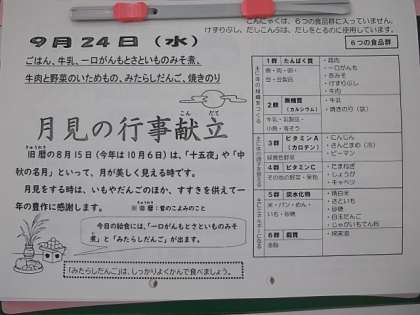 こんにゃくは、6つの食品群に入っていません。
けずりぶし、だしこんぶは、だしをとるのに使用しています。
9月24日(水)
6つの食品群
ごはん、牛乳、一口がんもとさといものみそ煮、
牛肉と野菜のいためもの、みたらしだんご、焼きのり
こんだて
月見の行事献立
旧暦の8月15日(今年は10月6日)は、「十五夜」や「中
秋の名月」といって、月が美しく見える時です。
月見をする時は、いもやだんごのほか、すすきを供えて一
年の豊作に感謝します。
※旧暦:昔のこよみのこと
今日の給食には、「一口がんもとさといものみそ
煮」と「みたらしだんご」が出ます。
「みたらしだんご」は、しっかりよくかんで食べましょう。
1群 たんぱく質
魚・肉・卵・
豆・豆製品
・鶏肉
・一口がんも
・赤みそ
・けずりぶし
・牛肉
2群 無機質
(カルシウム)
牛乳・乳製品・
小魚・海そう
・牛乳
・焼きのり(袋)
3群 ビタミンA
(カロテン)
緑黄色野菜
・にんじん
・さんどまめ(冷)
・ピーマン
4群 ビタミンC
その他の野菜・果物
・たまねぎ
・しょうが
・キャベツ
5群 炭水化物
米・パン・めん・
いも・砂糖
・精白米
・さといも
・砂糖
・白玉だんご
・じゃがいもでん粉
6群 脂質
油脂
・綿実油